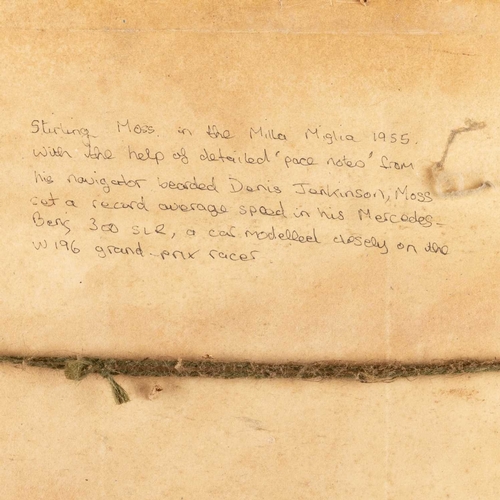 Stirling Moss. in the Milla Miglia 1955.
With the help of detailed 'pace notes' from
his navigator bearded Denis Jenkinson, Moss
set a record average speed in his Mercedes-
Benz 300 SLR, a car modelled closely on the
W196 grand-prix racer